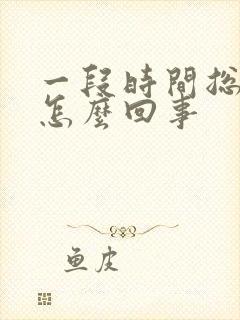 一段時間总
怎麼回事
鱼皮